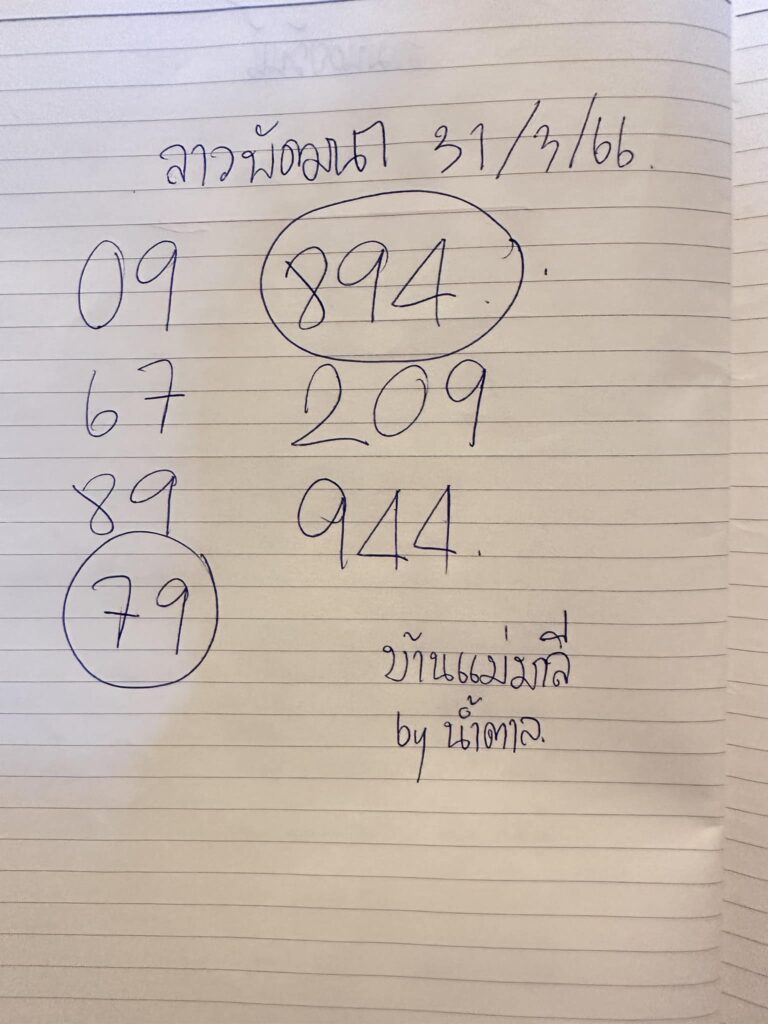 ลาวพัฒนา 31/3/66.
09 894.
67 209
89 944.
79
บ้านแม่มาลี
by น้ำตาล.